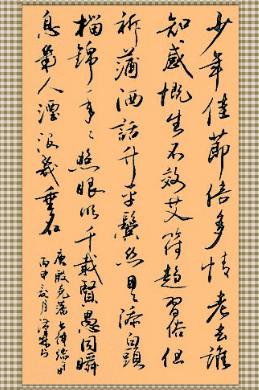 少年佳節倍多情老去誰
知感慨生不效艾符趨習俗但
祈蒲酒話升平鬢絲日日添白頭
榴錦年々照眼明千載賢愚同瞬
息幾人湮沒幾垂名
唐殷堯藩
丙申夏月